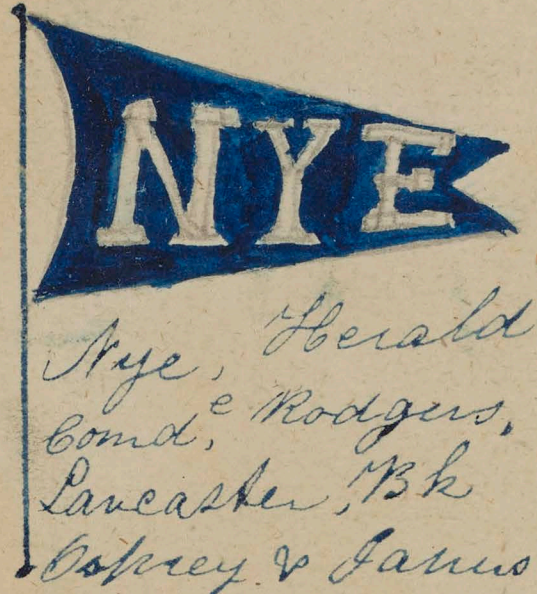 NYE
Nye, Herald
Comd,e Rodgers,
Lancaster, Bk
Osprey & Janus